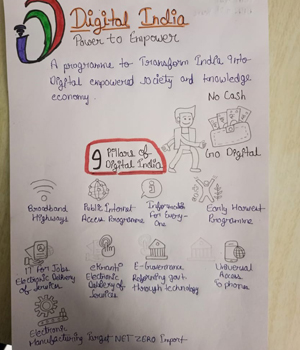 Digital India
Power to Empower
A programme to Transform India into
Digital empowered society and knowledge
economy.
No Cash
Go Digital
9 Pillars of
Digital India
Broadband
Highways
Public Internet
Access Programme
Information
For Every-
One
Early Harvest
Programme
IT For Jobs
Electronic Delivery
of Services
eKranti
Electronic
Delivery of
Services
E-Governance
Reforming govt.
through technology
Universal
Access
To phones
Electronic
Manufacturing Target NET ZERO Import